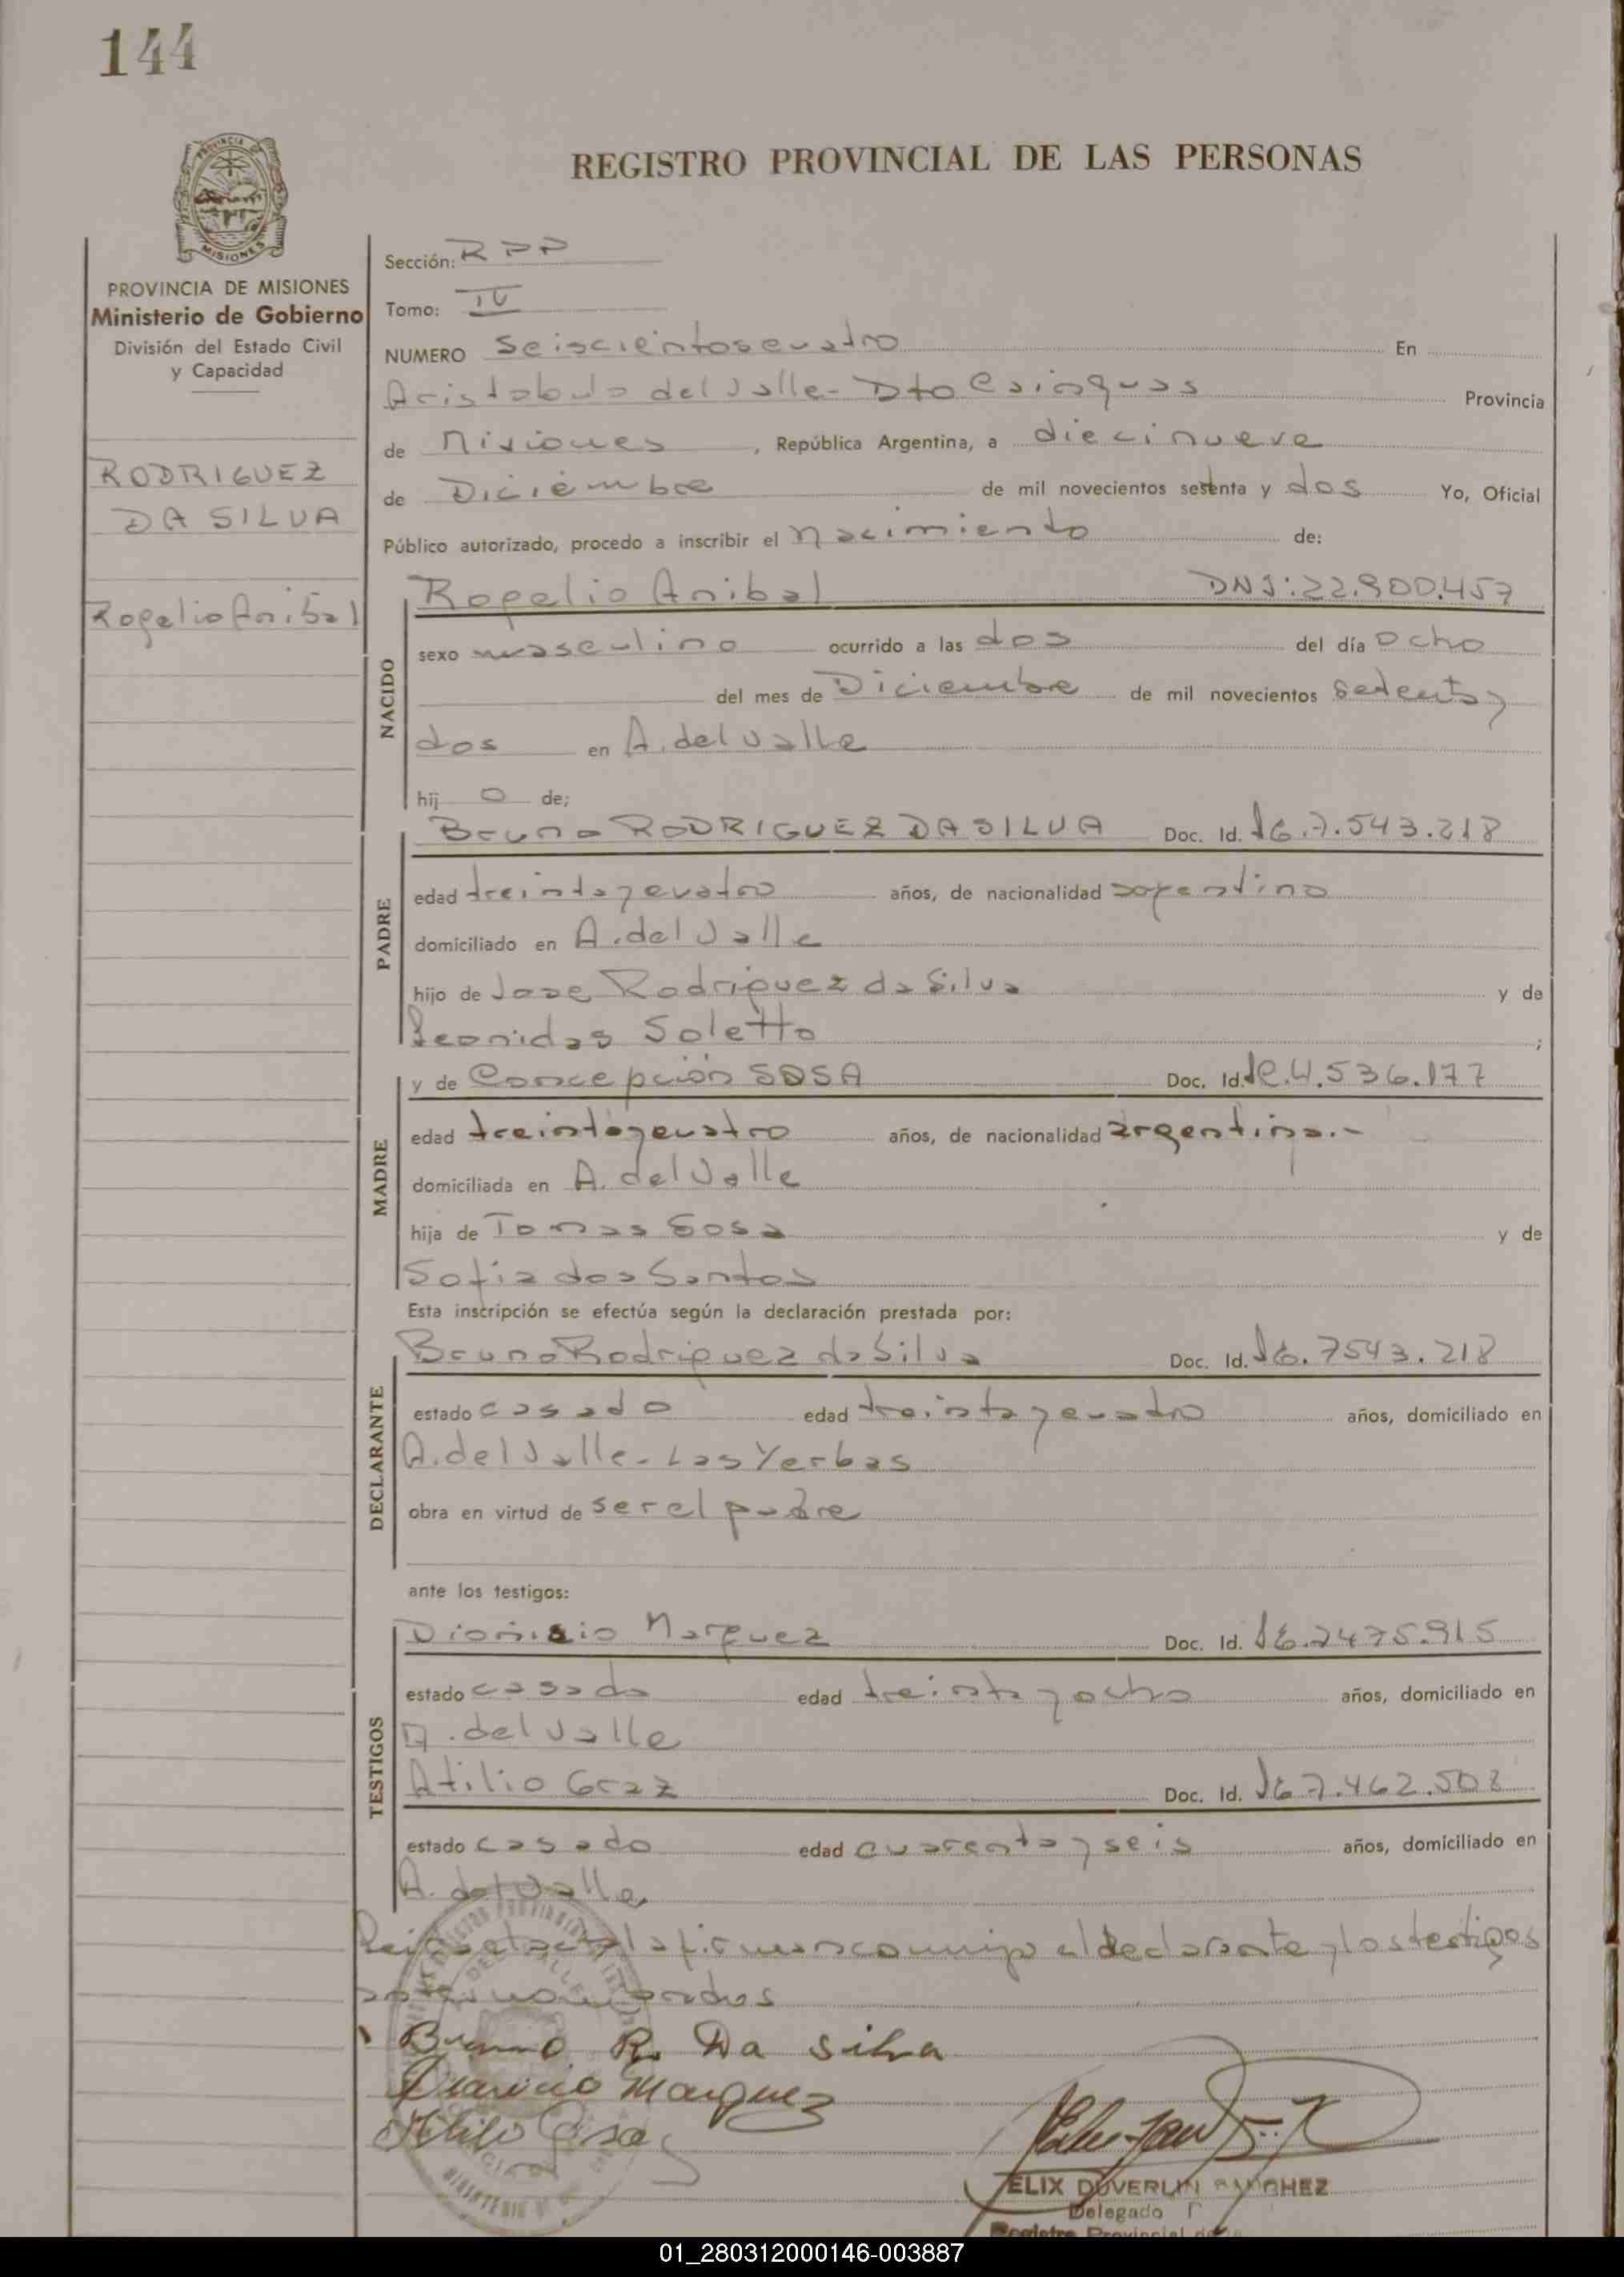 144
PROVINCIA DE MISIONES
PROVINCIA DE MISIONES
Ministerio de Gobierno
División del Estado Civil
y Capacidad
RODRIGUEZ
DA SILVA
Rogelio Anibal
REGISTRO PROVINCIAL DE LAS PERSONAS
Sección: RPP
Tomo: IV
NUMERO Seiscientoscuatro En
Aristobulo del Valle - Dto Cainguas Provincia
de Misiones, República Argentina, a diecinueve
de Diciembre de mil novecientos setenta y dos Yo, Oficial
Público autorizado, procedo a inscribir el nacimiento de:
NACIDO
Rogelio Anibal DNI: 22.900.457
sexo masculino ocurrido a las dos del día ocho
del mes de Diciembre de mil novecientos setenta y
dos en A. del Valle
hij o de;
PADRE
Bruno RODRIGUEZ DA SILVA Doc. Id. 7.543.218
edad treinta y cuatro años, de nacionalidad argentino
domiciliado en A. del Valle
hijo de Jose Rodriguez da Silva y de
Leonidas Soletto;
MADRE
y de Concepción SOSA Doc. Id. 4.536.177
edad treinta y cuatro años, de nacionalidad argentina.-
domiciliada en A. del Valle
hija de Tomas Sosa y de
Sofia dos Santos
Esta inscripción se efectúa según la declaración prestada por:
DECLARANTE
Bruno Rodriguez da Silva Doc. Id. 7543.218
estado casado edad treinta y cuatro años, domiciliado en
A. del Valle - Las Yerbas
obra en virtud de ser el padre
ante los testigos:
TESTIGOS
Dionisio Marquez Doc. Id. 7475.915
estado casado edad treinta y ocho años, domiciliado en
A. del Valle
Atilio Graz Doc. Id. 7.462.508
estado casado edad cuarenta y seis años, domiciliado en
A. del Valle
acta la firman conmigo el declarante y los testigos
antes nombrados
Bruno R. Da silva
Dionicio Marquez
Atilio
ELIX DUVERLIN SANCHEZ
Delegado
Registro Provincial de
01_280312000146-003887